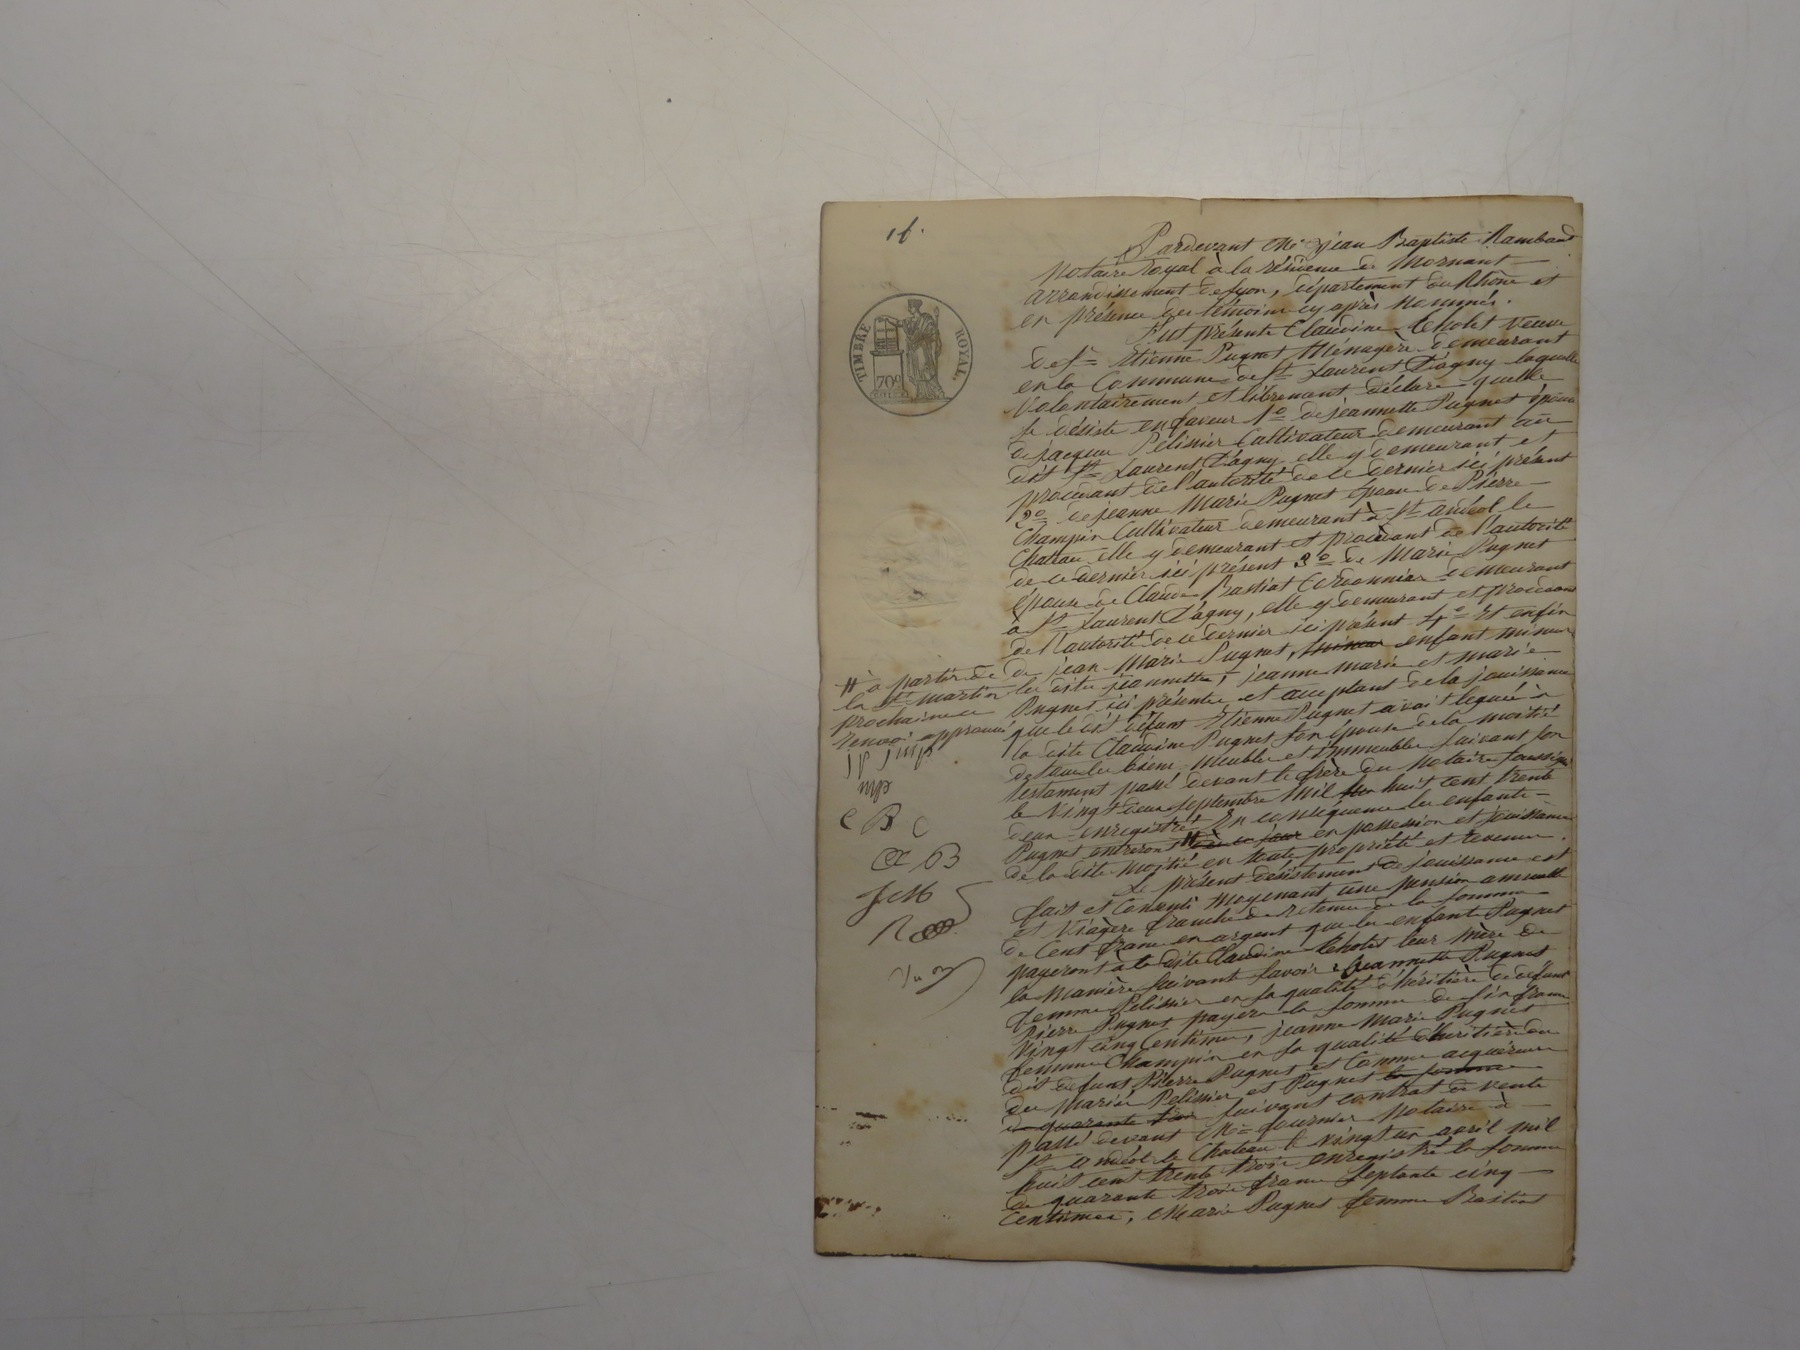 1f.
TIMBRE ROYAL.
70c
Pardevant Me Jean Baptiste Rambaud
Notaire Royal à la résidence de Mornant
arrondissement de Lyon, département du Rhône et
en présence des témoins cy après nommés.
Fut présente Claudine Tholet veuve
de ft Etienne Pugnet Ménagère demeurant
en la Commune de St Laurent D'agny laquelle
Volontairement et librement déclare quelle
se désiste en faveur 1o de jeannette Pugnet épouse
de jacques Pelissier Cultivateur demeurant au
dit St Laurent D'agny elle y demeurant et
procédant de l'autorité de ce dernier ici présent
2o de jeanne Marie Pugnet épouse de Pierre
Champin Cultivateur demeurant à St andéol le
Chateau elle y demeurant et procédant de l'autorité
de ce dernier ici présent 3o de Marie Pugnet
épouse de Claude Bastiat Cordonnier demeurant
à St Laurent D'agny, elle y demeurant et procédant
de l'autorité de ce dernier ici présent 4o Et enfin
de jean Marie Pugnet, mineur enfant mineur
les dites jeannette, jeanne marie et marie
Pugnet ici présentes et acceptant de la jouissance
que le dit défunt Etienne Pugnet avait leguée à
la dite Claudine Pugnet son épouse de la moitié
de tous les biens meubles et immeubles suivant son
testament passé devant le frère du notaire soussigné
le Vingt deux septembre Mil huit cent trente
deux enregistré. En conséquence les enfants
Pugnet entreront # dès ce jour en possession et jouissance
de la dite moitié en toute propriété et revenus.
Le présent désistement de jouissance est
fait et Consenti Moyenant une pension annuelle
et Viagère franche de retenue de la somme
de Cent francs en argent que les enfants Pugnet
payeront à la dite Claudine Tholet leur mère de
la Manière suivante savoir : Jeannette Pugnet
femme Pelissier en sa qualité d'héritière de défunt
Pierre Pugnet payera la somme de six francs
Vingt cinq Centimes, jeanne Marie Pugnet
femme Champin en sa qualité d'héritière du
dit defunt Pierre Pugnet et Comme acquéreurs
des Mariés Pelissier et Pugnet la somme
de quarante trois suivant contrat de vente
passé devant Me fournier Notaire à
St andéol le Chateau le vingt un avril mil
huit cent trente trois enregistré la somme
de quarante trois francs septante cinq
Centimes, Marie Pugnet femme Bastiat
# à partir de
la St martin
prochaine
renvoi approuvé
C B
JCM